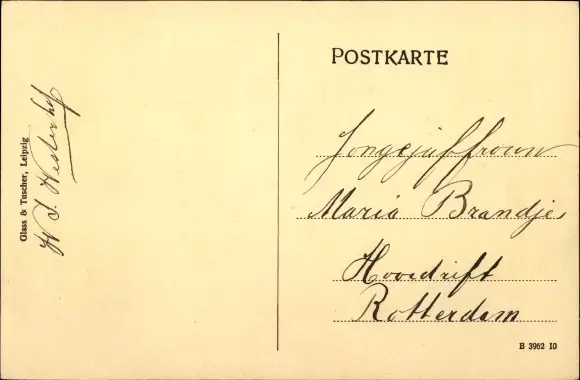 Glass & Tuscher, Leipzig
W. J. Westerhof
POSTKARTE
Jongejuffrouw
Maria Brandjes
Hooidrift
Rotterdam
B 3962 10